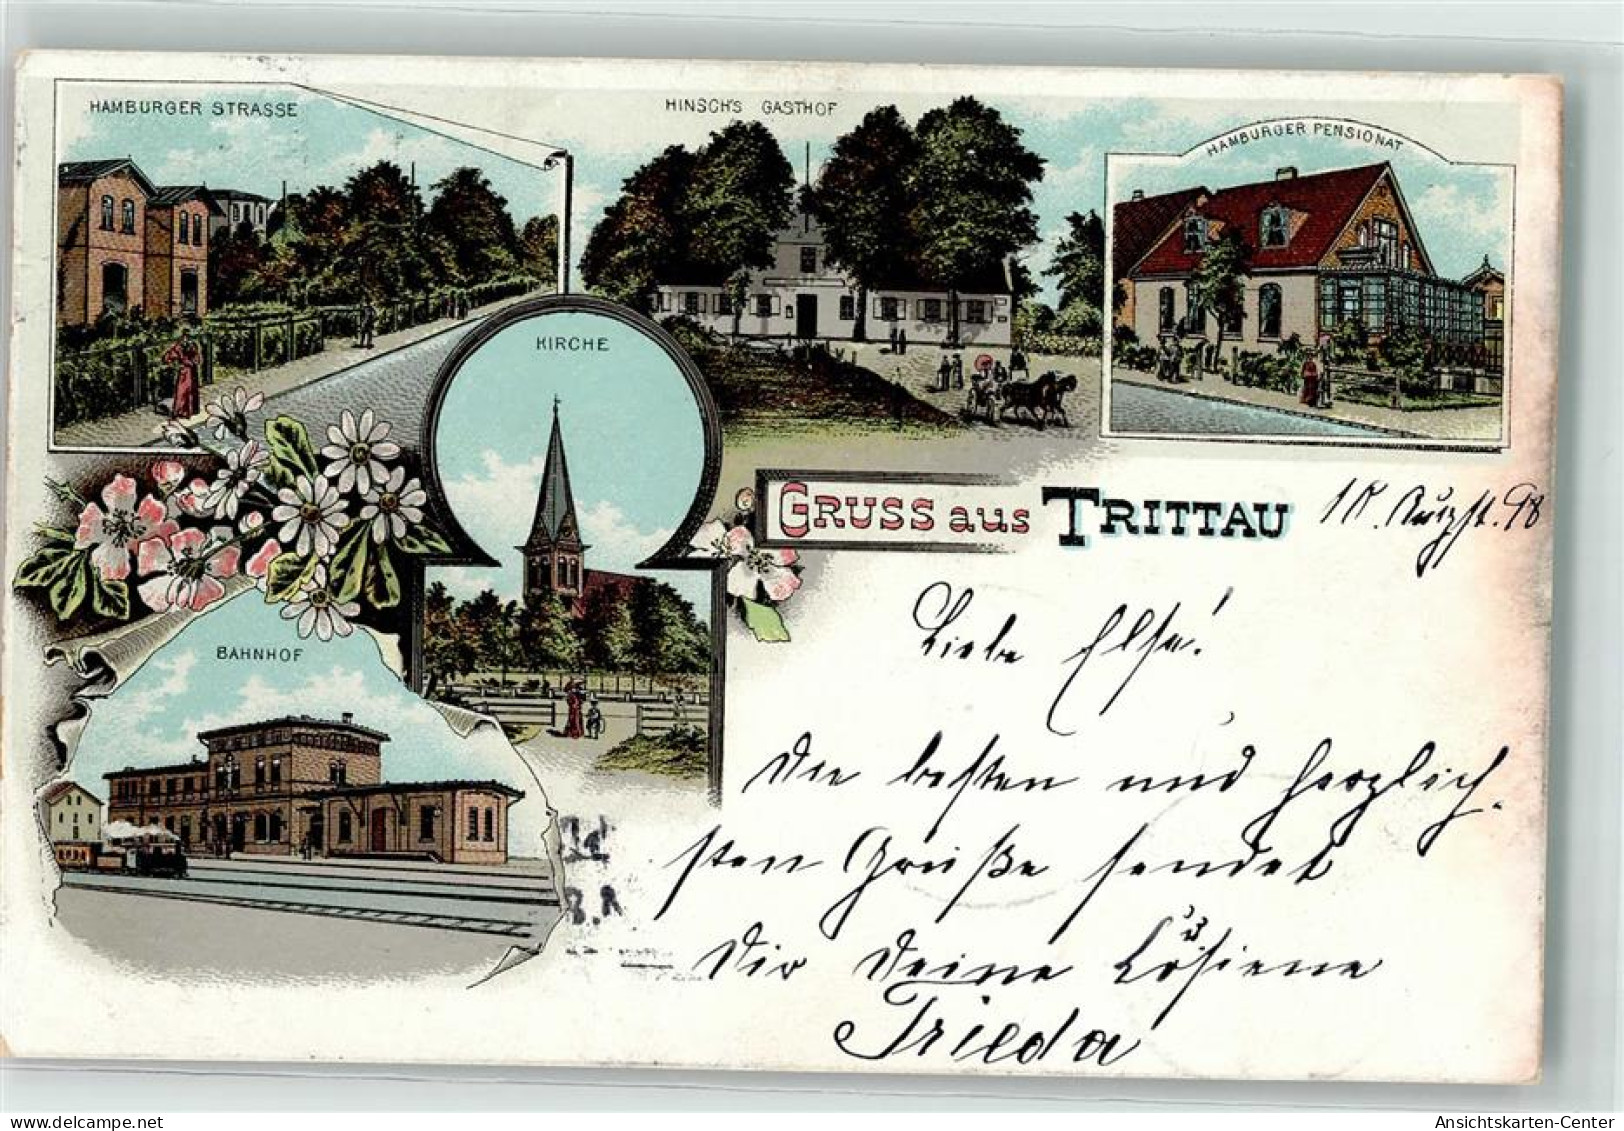 HAMBURGER STRASSE
HINSCH'S GASTHOF
HAMBURGER PENSIONAT
KIRCHE
GRUSS aus TRITTAU
August. 98
Liebe Else!
Die besten und herzlich-
sten Grüße sendet
Dir Deine
Frieda
BAHNHOF
Ansichtskarten-Center